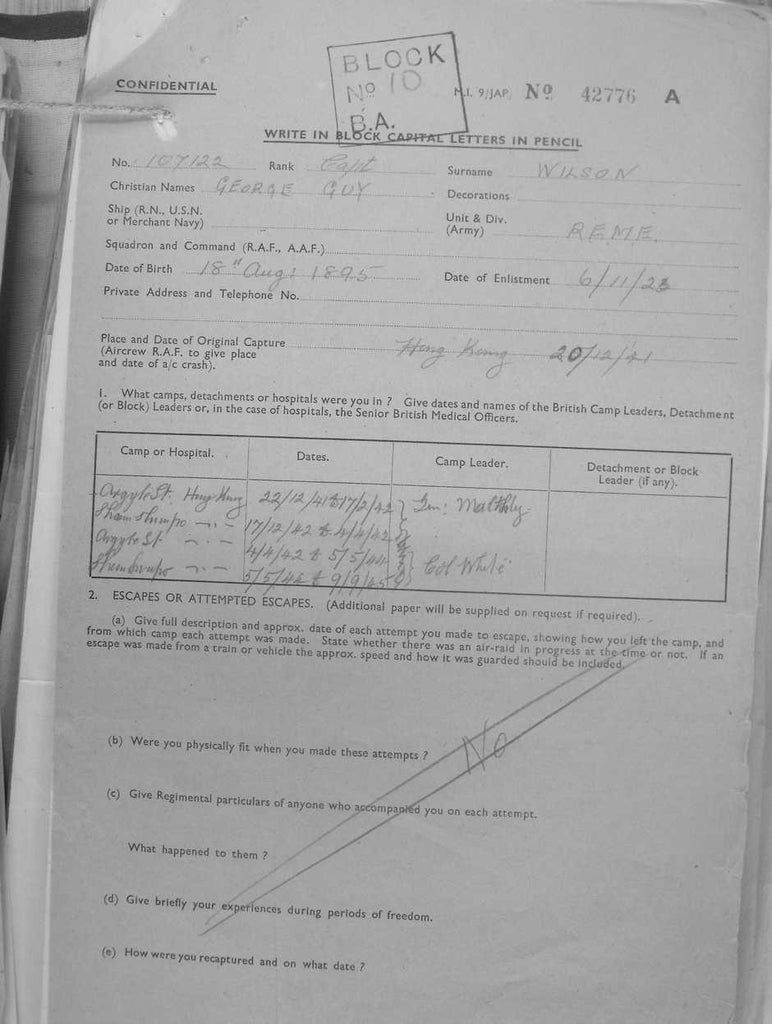 BLOCK
No 10
B.A.
CONFIDENTIAL
M.I. 9/JAP. No 42776 A
WRITE IN BLOCK CAPITAL LETTERS IN PENCIL
No. 107122 Rank Capt Surname WILSON
Christian Names GEORGE GUY Decorations
Ship (R.N., U.S.N. or Merchant Navy) Unit & Div. (Army) REME.
Squadron and Command (R.A.F., A.A.F.)
Date of Birth 18th Aug: 1895 Date of Enlistment 6/11/23
Private Address and Telephone No.
Place and Date of Original Capture Hong Kong 20/12/41
(Aircrew R.A.F. to give place
and date of a/c crash).
1. What camps, detachments or hospitals were you in ? Give dates and names of the British Camp Leaders, Detachment
(or Block) Leaders or, in the case of hospitals, the Senior British Medical Officers.
Camp or Hospital. Dates. Camp Leader. Detachment or Block Leader (if any).
Argyle St. Hong Kong 22/12/41 to 17/2/42 Gen: Maltby
Sham Shuipo -"- 17/12/42 to 4/4/42
Argyle St -"- 4/4/42 to 5/5/44 Col White
Shamshuipo -"- 5/5/44 to 9/9/45
2. ESCAPES OR ATTEMPTED ESCAPES. (Additional paper will be supplied on request if required).
(a) Give full description and approx. date of each attempt you made to escape, showing how you left the camp, and
from which camp each attempt was made. State whether there was an air-raid in progress at the time or not. If an
escape was made from a train or vehicle the approx. speed and how it was guarded should be included.
No
(b) Were you physically fit when you made these attempts ?
(c) Give Regimental particulars of anyone who accompanied you on each attempt.
What happened to them ?
(d) Give briefly your experiences during periods of freedom.
(e) How were you recaptured and on what date ?